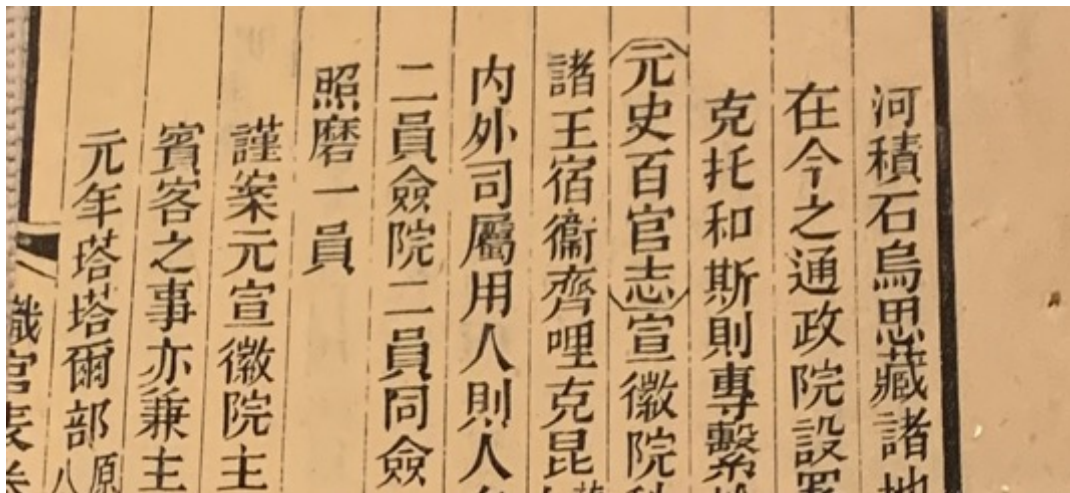 河積石烏思藏諸地
在今之通政院設署
克托和斯則專繫
(元史百官志)宣徽院
諸王宿衞齊哩克昆
内外司屬用人則人
二員僉院二員同僉
照磨一員
謹案元宣徽院主
賓客之事亦兼主
元年塔塔爾部原八
職官表卷